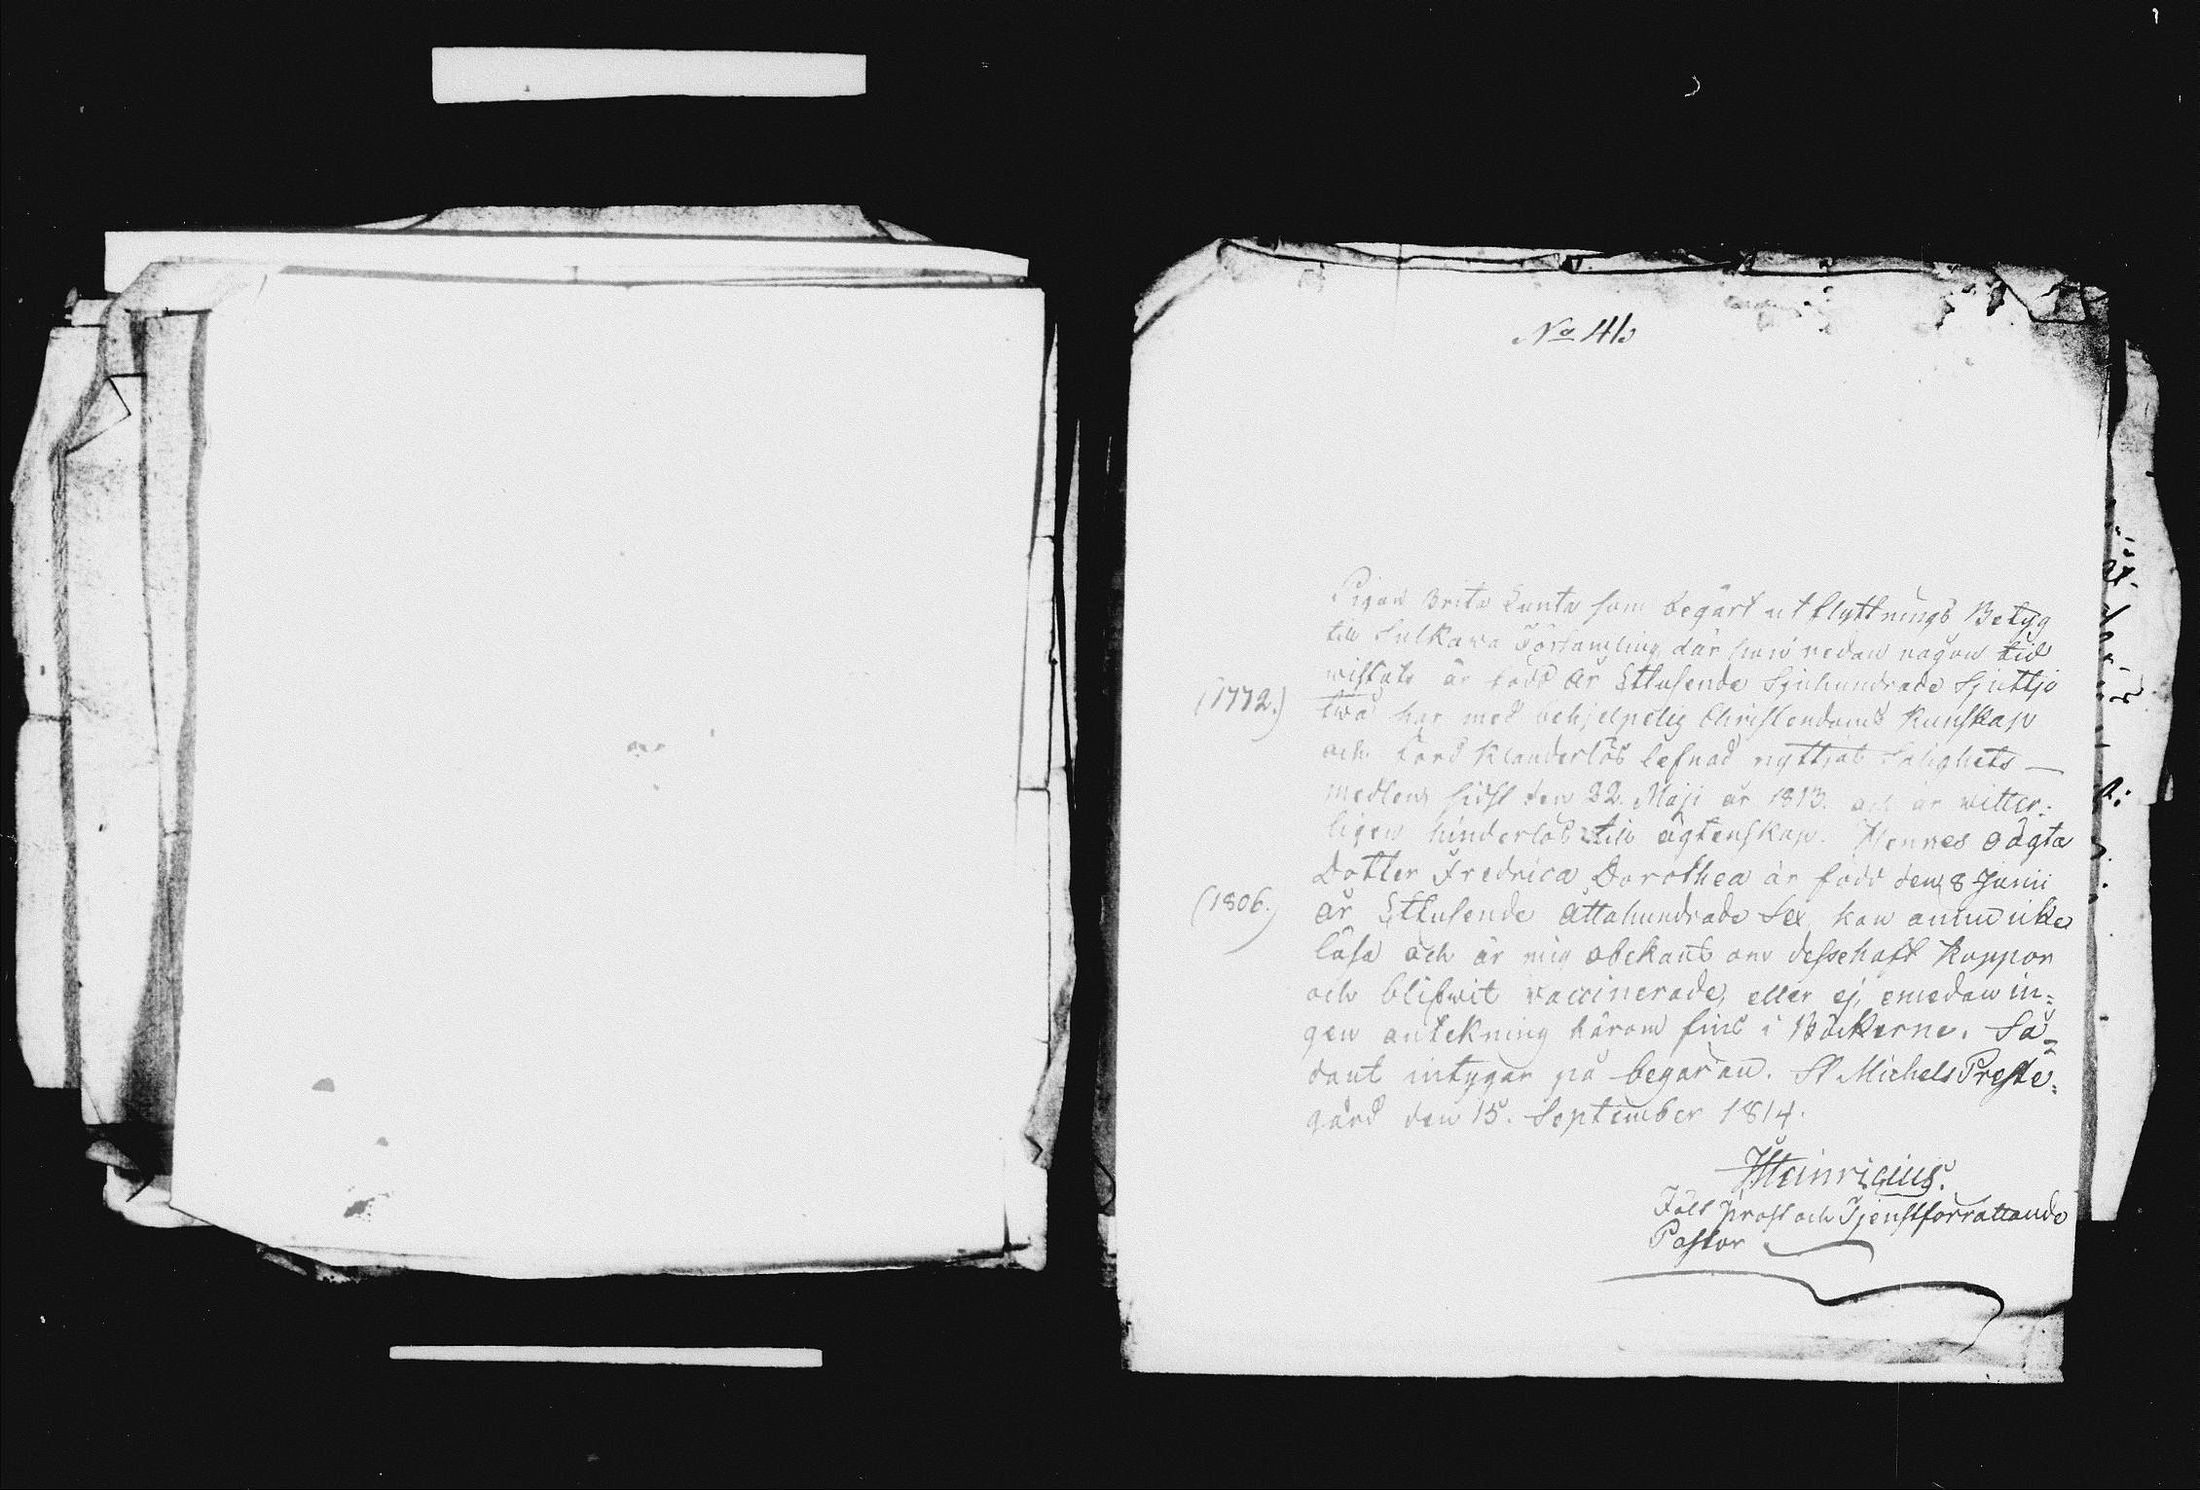 No 41
Pigan Brita Lunta som begärt utflyttnings Betyg
till Sulkava Församling, där hon redan någon tid
wistats är född år Ettusende Sjuhundrade Sjuttjo
(1772.) twå har med behjelpelig Christendoms Kunskap
och förd Klanderlös lefnad nyttjat Salighets
medlen sidst den 22. Maji år 1813. och är witter-
ligen hinderlös till ägtenskap. Hennes oägta
Dotter Fredrica Dorothea är född den 8 Junii
(1806.) år Ettusende Åttahundrade Sex, kan ännu icke
läsa och är mig obekant om desse haft Koppor
och blifwit vaccinerade, eller ej, emedan in-
gen antekning härom fins i Böckerne. Så-
dant intygar på begäran. St Michels Preste-
gård den 15. September 1814.
Heinricius.
Fält Prost och Tjenstförrättande
Pastor